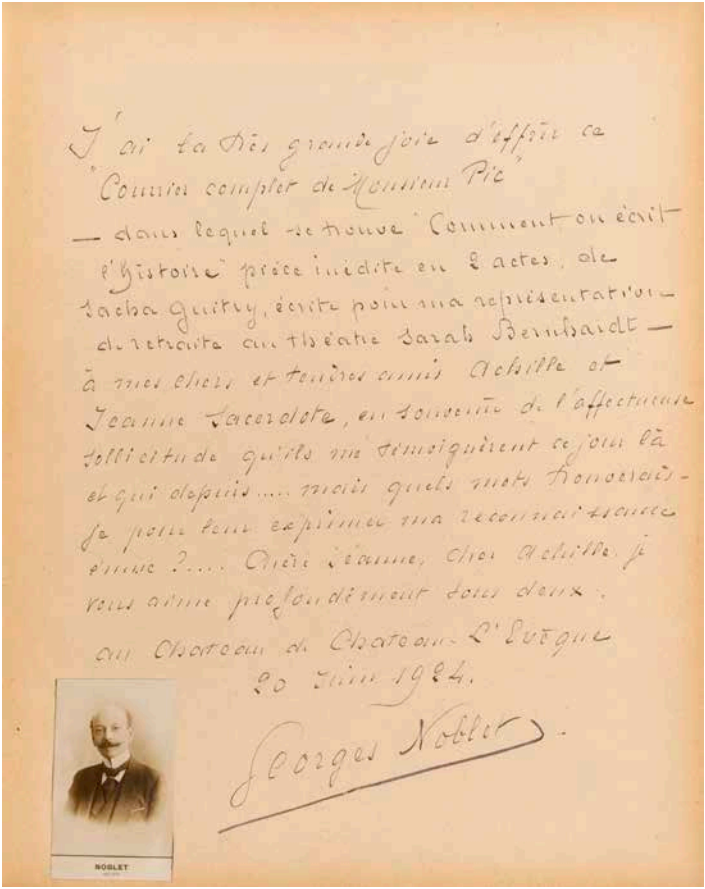 J'ai la très grande joie d'offrir ce
"Courrier complet de Monsieur Pic"
— dans lequel se trouve "Comment on écrit
l'Histoire" pièce inédite en 2 actes, de
Sacha Guitry, écrite pour ma représentation
de retraite au théâtre Sarah Bernhardt —
à mes chers et tendres amis Achille et
Jeanne Sacerdote, en souvenir de l'affectueuse
sollicitude qu'ils me témoignèrent ce jour là
et qui depuis..... mais quels mots trouverais-
je pour leur exprimer ma reconnaissance
émue ?.... Chère Jeanne, cher Achille, je
vous aime profondément tous deux.
au Château de Château-L'Evêque
20 Juin 1924.
Georges Noblet
NOBLET